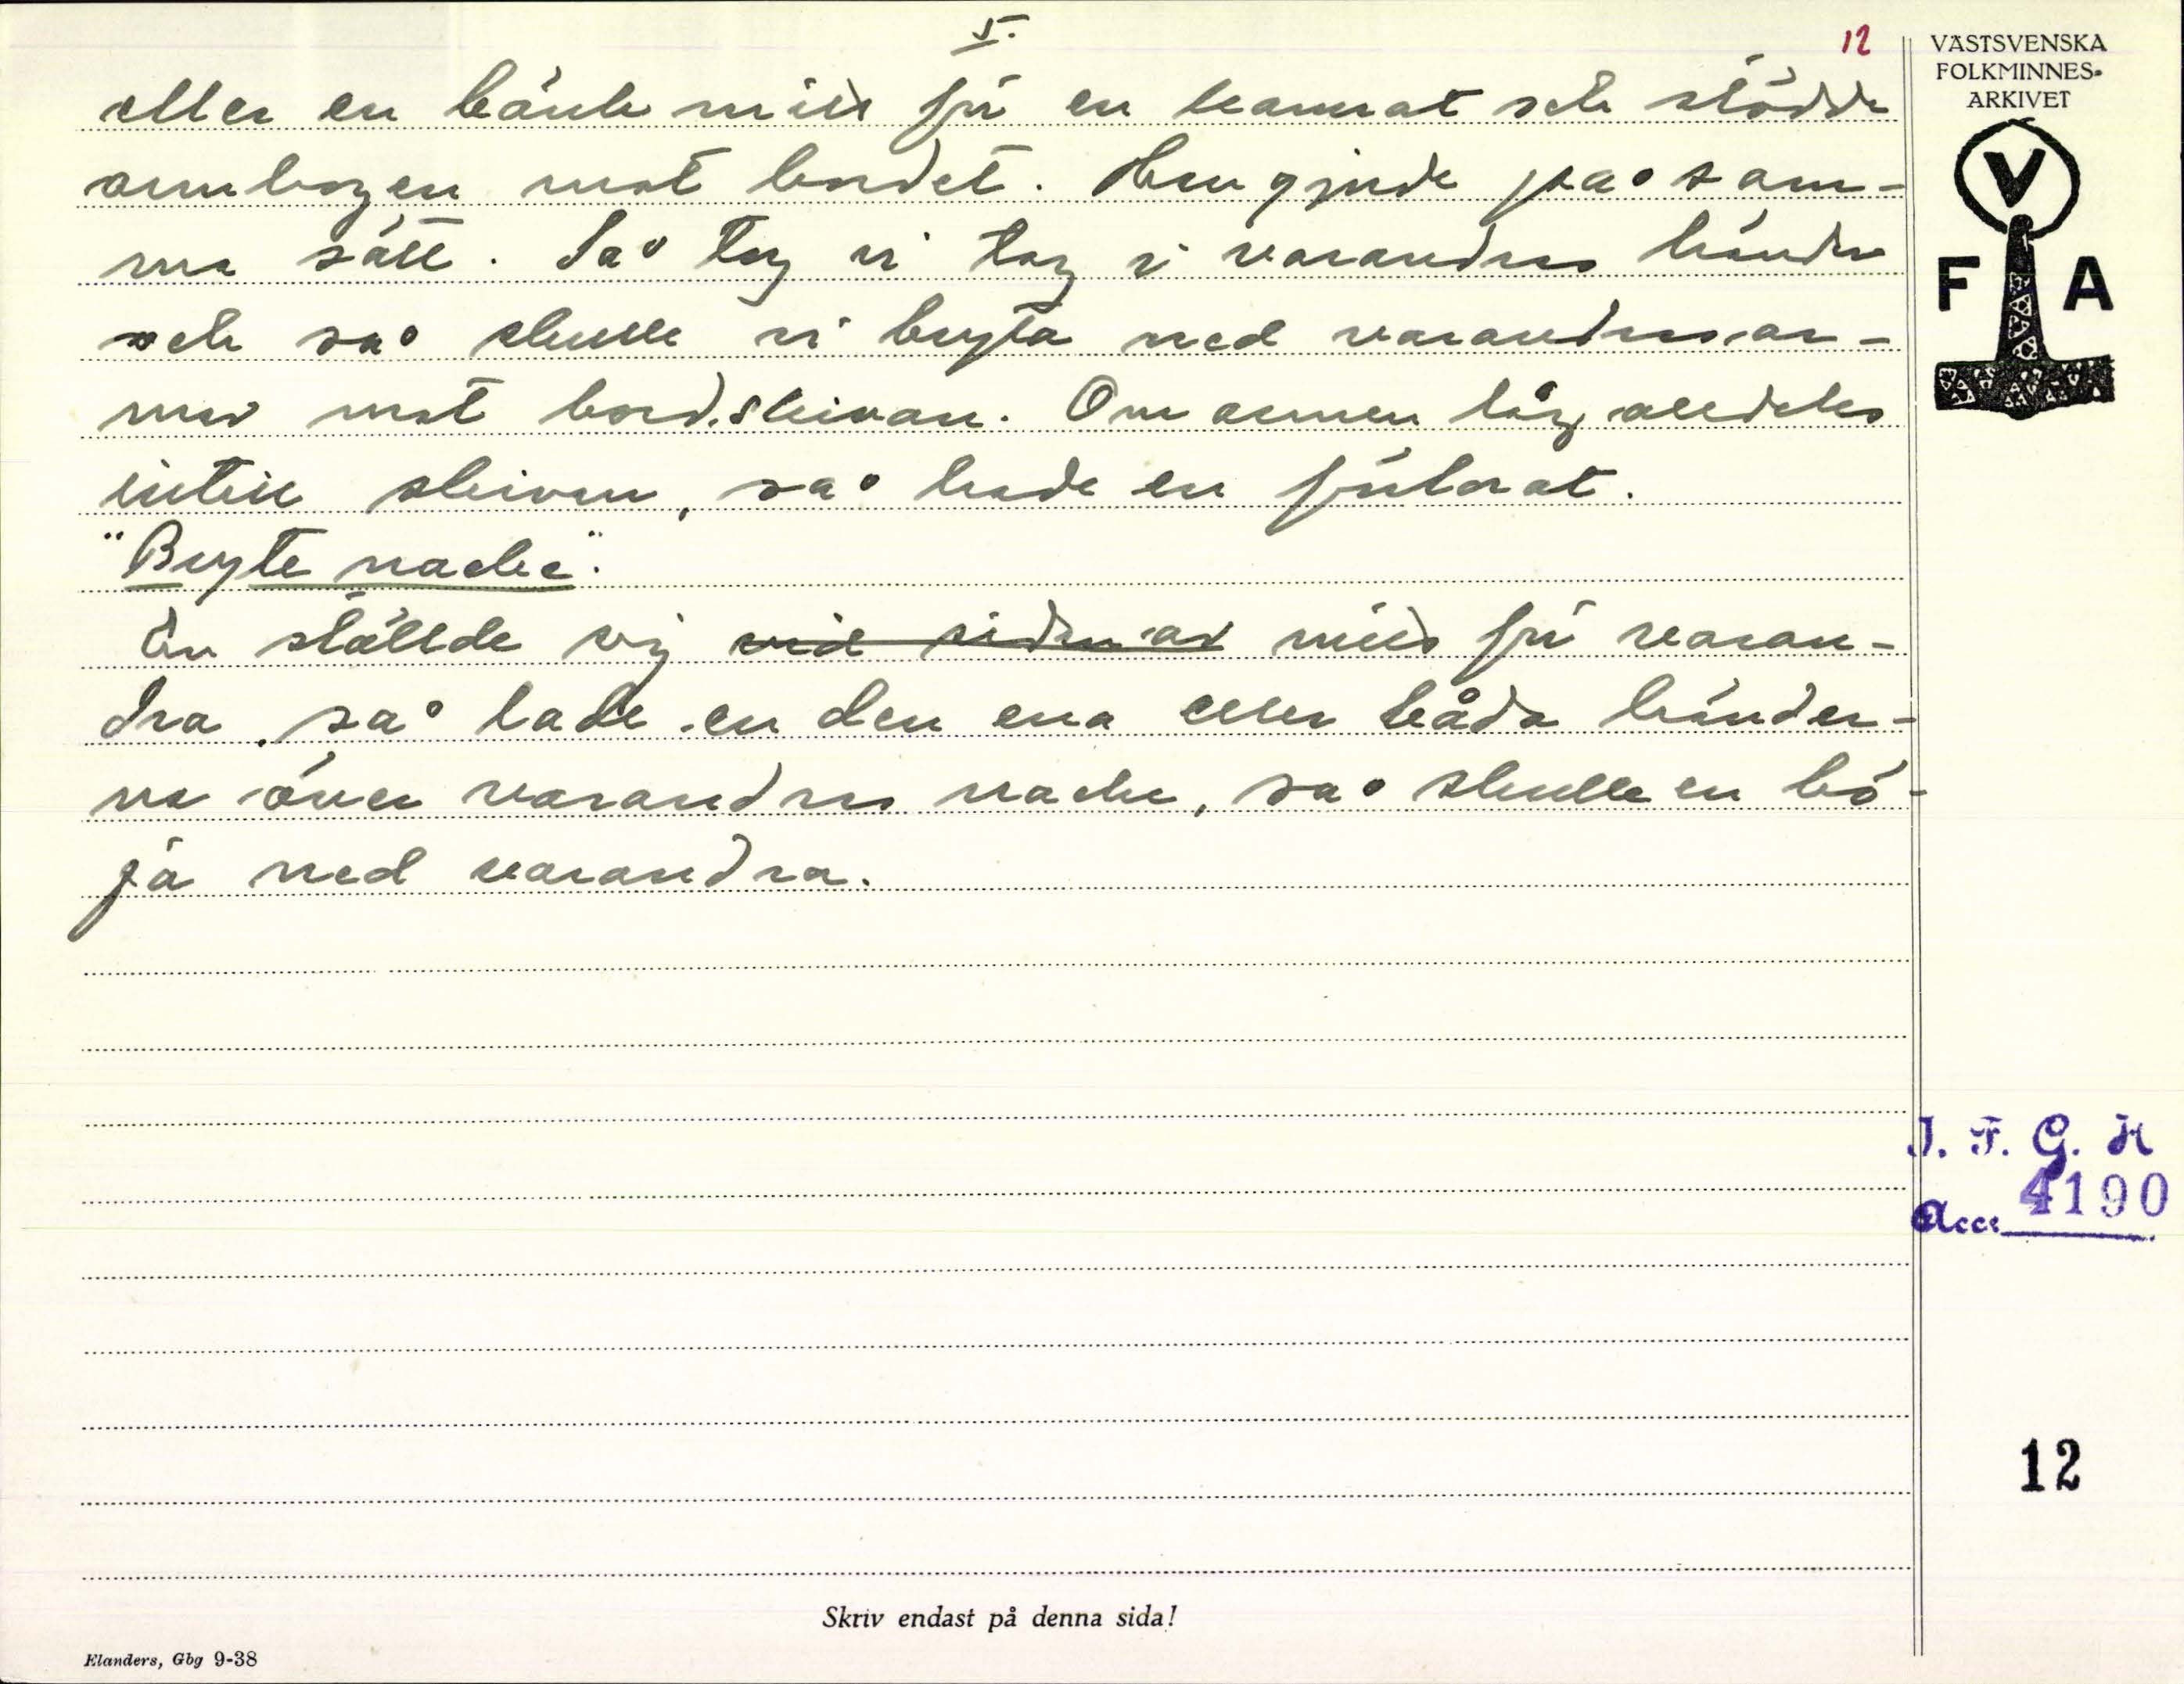 5.
12
eller en bänk mitt för en kamrat och stödde
armbogen mot bordet. Han gjorde på sam-
ma sätt. Så tog vi tag i varandras händer
och så skulle vi bryta ned varandras ar-
mar mot bordsskivan. Om armen låg alldeles
intill skivan, så hade en förlorat.
"Bryte nacke".
En ställde sig vid sidan av mitt för varan-
dra, så lade en den ena eller båda händer-
na över varandras nacke, så skulle en bö-
ja ned varandra.
VÄSTSVENSKA
FOLKMINNES-
ARKIVET
V
F A
I. F. G. H
Acc: 4190
12
Skriv endast på denna sida!
Elanders, Gbg 9-38